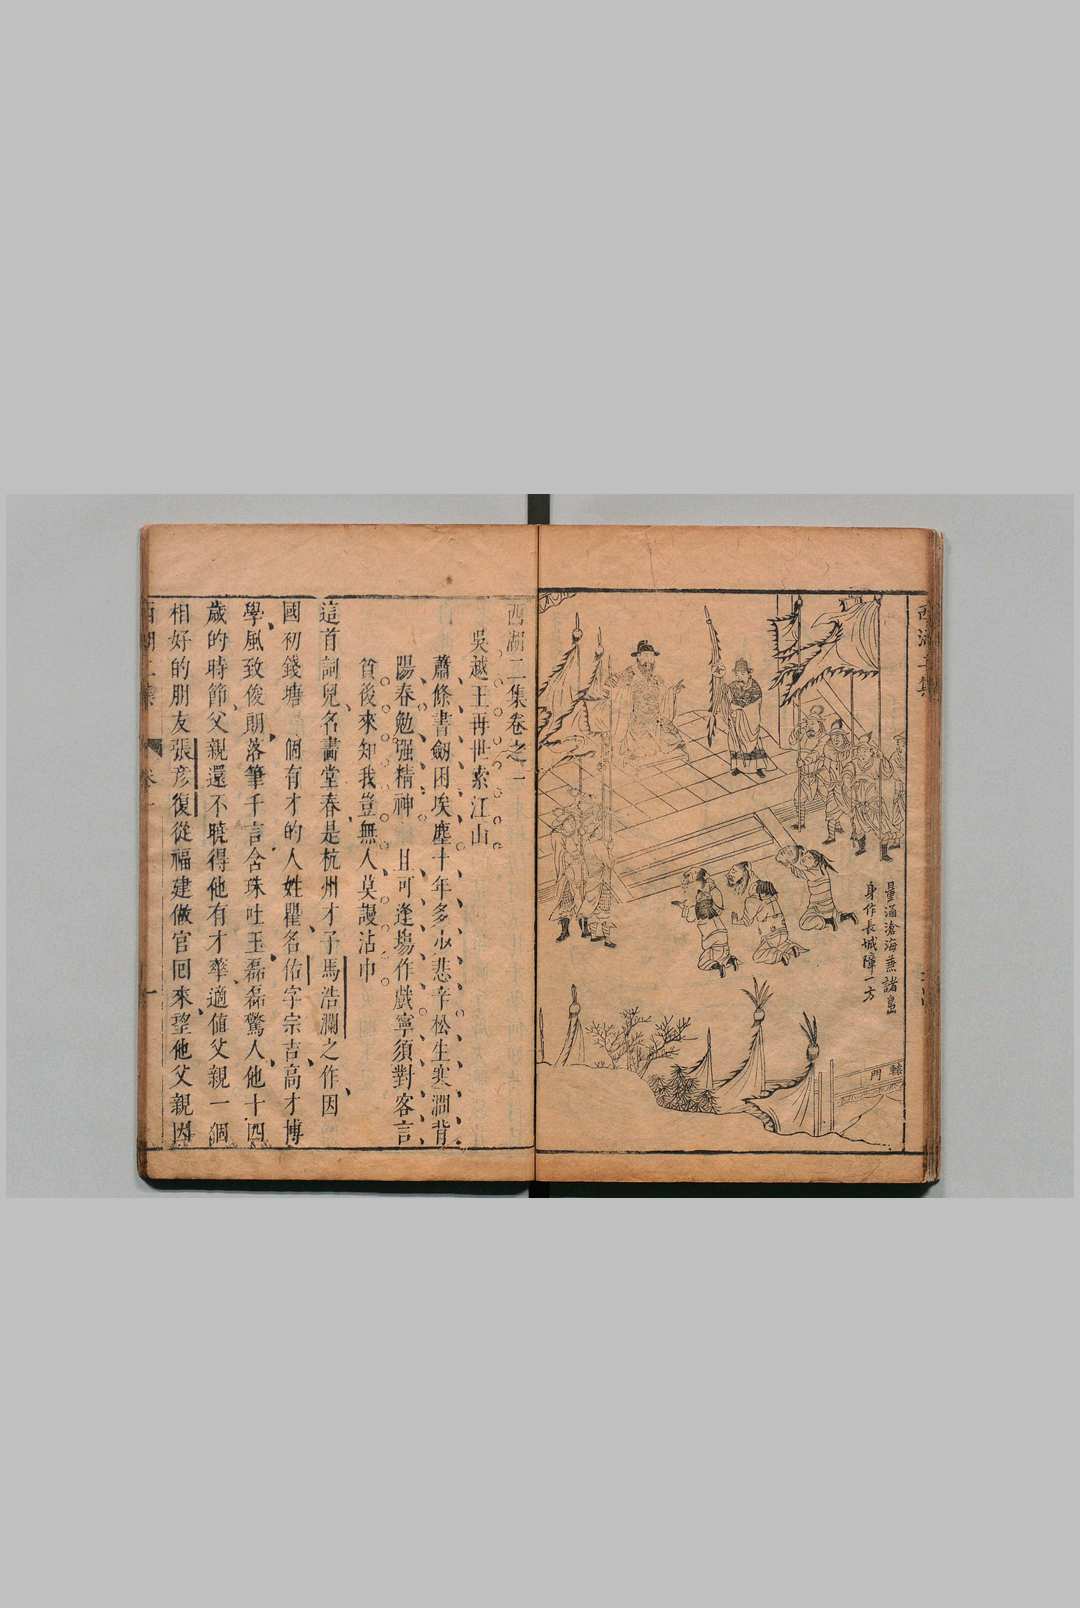 西湖二集
量涵滄海兼諸島
身作長城障一方
轅門
西湖二集卷之一
吳越王再世索江山
蕭條書劒困埃塵十年多少悲辛松生寒澗背
陽春勉强精神 且可逢塲作戲寧須對客言
貧後來知我豈無人莫謾沾巾
這首詞兒名畫堂春是杭州才子馬浩瀾之作因
國初錢塘 個有才的人姓瞿名佑字宗吉高才博
學風致俊朗落筆千言含珠吐玉磊磊驚人他十四
歲的時節父親還不曉得他有才華適值父親一個
相好的朋友張彦復從福建做官回來望他父親因
西湖二集 卷一 一